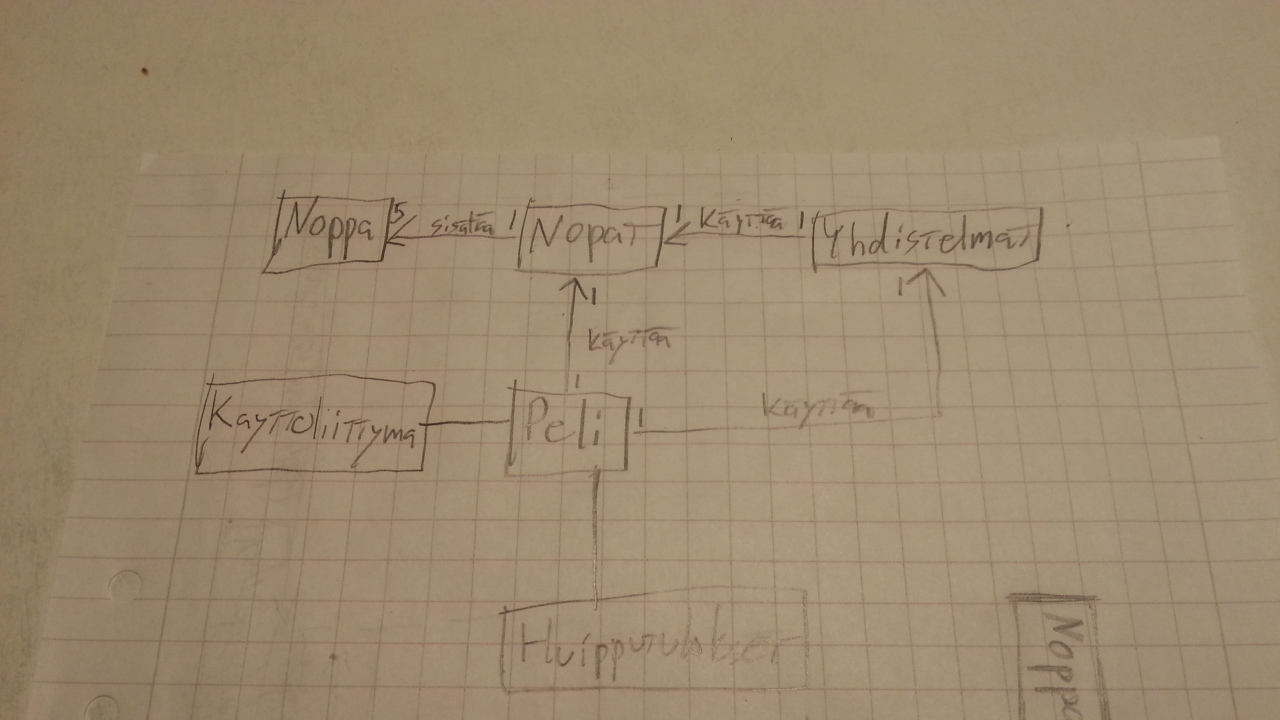 Noppa 5 sisältää 1 Nopat 1 Käyttää 1 Yhdistelmät
1 1
käyttää
1
Käyttöliittymä Peli 1 käyttää
Noppa